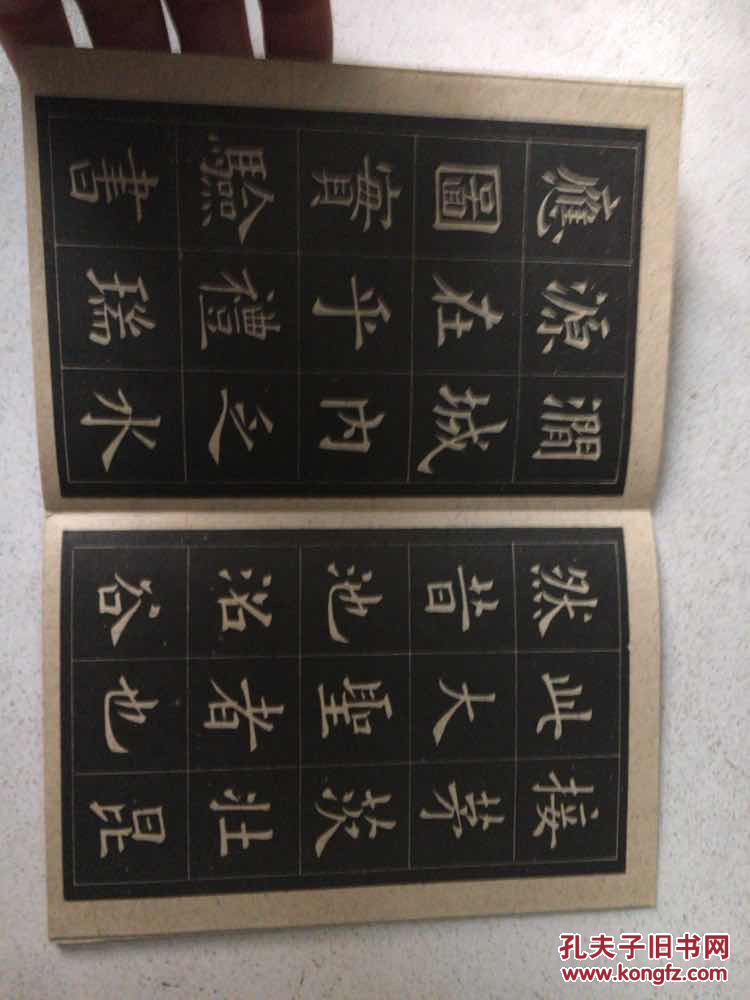 接茅茨壯昆
此大聖者也
然昔池沼谷
澗城內之水
源在乎禮瑞
應圖實驗書
孔夫子旧书网
www.kongfz.com